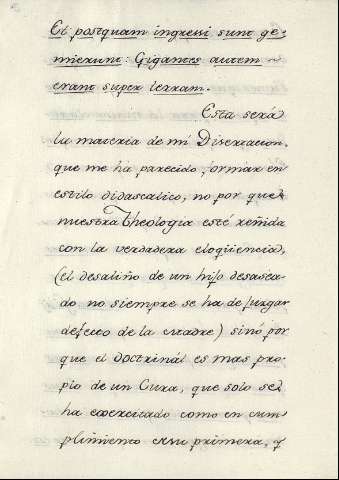 Et postquam ingressi sunt ge-
mierunt: Gigantes autem
erant super terram.
Esta será
la materia de mi Disertacion,
que me ha parecido formar en
estilo didascalico, no por que
nuestra Theologia esté reñida
con la verdadera eloqüencia,
(el desaliño de un hijo desasea-
do no siempre se ha de juzgar
defecto de la madre) sinó por
que el doctrinál es mas pro-
pio de un Cura, que solo se
ha exercitado como en cum-
plimiento de su primera, y